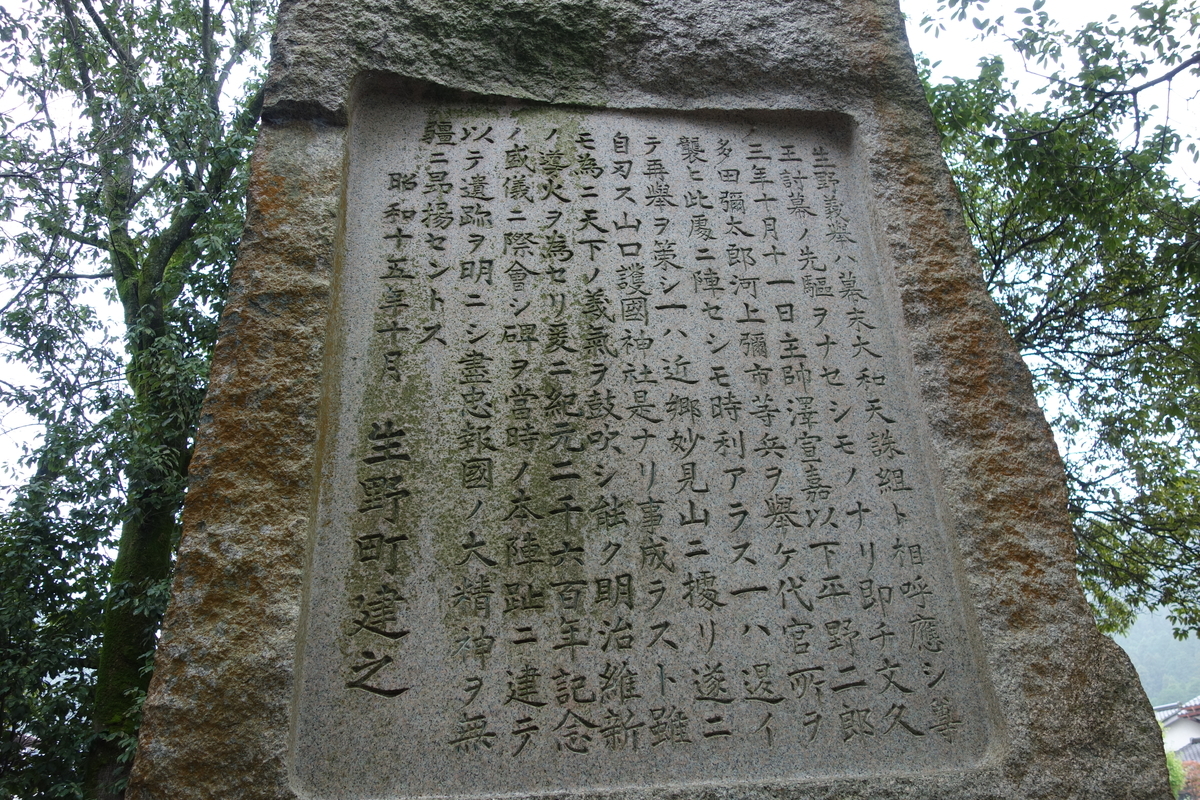 生野義擧ハ幕末大和天誅組ト相呼應シ尊
王討幕ノ先驅ヲナセシモノナリ即チ文久
三年十月十一日主帥澤宣嘉以下平野二郎
多田彌太郎河上彌市等兵ヲ擧ケ代官所ヲ
襲ヒ此處ニ陣セシモ時利アラス一ハ退イ
テ再擧ヲ策シ一ハ近郷妙見山ニ據リ遂ニ
自刃ス山口護國神社是ナリ事成ラスト雖
モ為ニ天下ノ義氣ヲ鼓吹シ能ク明治維新
ノ導火ヲ為セリ爰ニ紀元二千六百年記念
ノ盛儀ニ際會シ碑ヲ當時ノ本陣趾ニ建テ
以テ遺跡ヲ明ニシ盡忠報國ノ大精神ヲ無
疆ニ昂揚セントス
昭和十五年十月 生野町建之